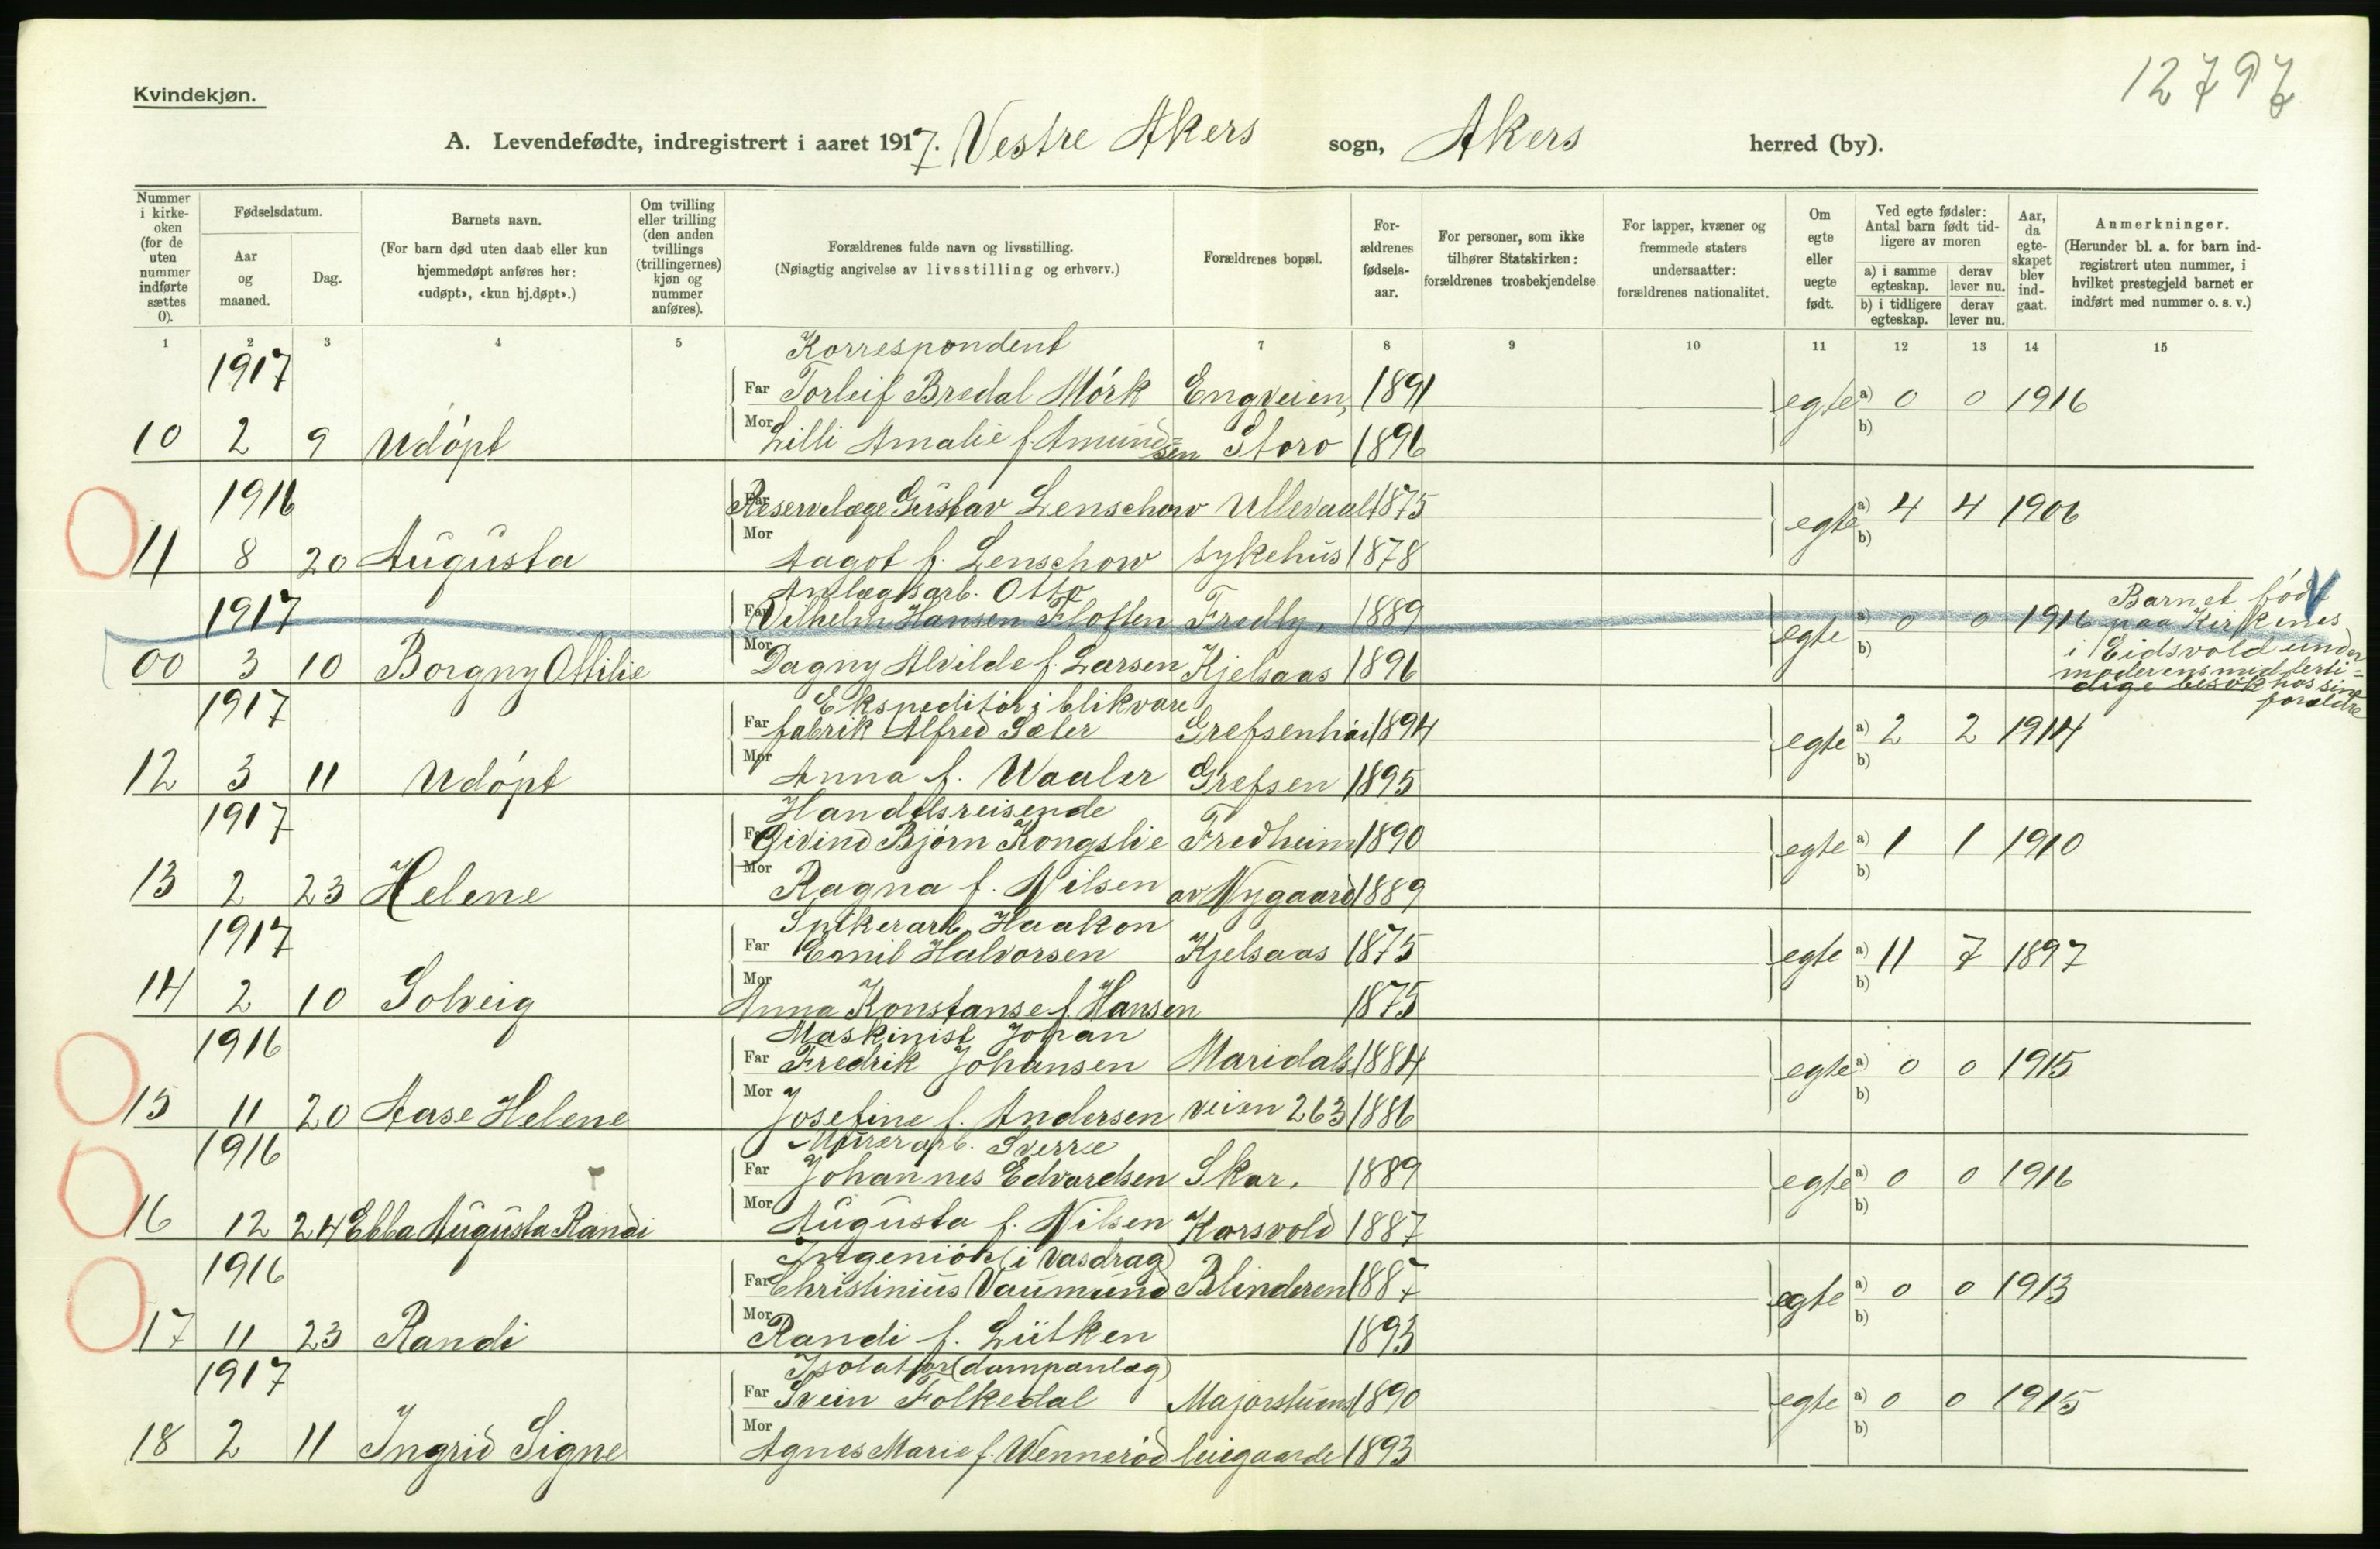 12797
Kvindekjøn.
A. Levendefødte, indregistrert i aaret 1917. Vestre Akers sogn, Akers herred (by).
Nummer i kirke- oken (for de uten nummer indførte sættes 0).
Fødselsdatum.
Aar og maaned.
Dag.
Barnets navn.
(For barn død uten daab eller kun hjemmedøpt anføres her: «udøpt», «kun hj.døpt».)
Om tvilling eller trilling (den anden tvillings (trillingernes) kjøn og nummer anføres).
Forældrenes fulde navn og livsstilling.
(Nøiagtig angivelse av livsstilling og erhverv.)
Forældrenes bopæl.
For- ældrenes fødsels- aar.
For personer, som ikke tilhører Statskirken: forældrenes trosbekjendelse
For lapper, kvæner og fremmede staters undersaatter: forældrenes nationalitet.
Om egte eller uegte født.
Ved egte fødsler: Antal barn født tid- ligere av moren
a) i samme egteskap.
derav lever nu.
b) i tidligere egteskap.
derav lever nu.
Aar, da egte- skapet blev ind- gaat.
Anmerkninger.
(Herunder bl. a. for barn ind- registrert uten nummer, i hvilket prestegjeld barnet er indført med nummer o. s. v.)
1 2 3 4 5 7 8 9 10 11 12 13 14 15
1917 Korrespondent
Far Torleif Bredal Mörk Engveien, 1891 egte a) 0 0 1916
10 2 9 Udöpt Mor Lilli Amalie f. Amundsen Storo 1896 b)
1916 Far Reservelæge Gustav Lenschow Ullevaal 1875 egte a) 4 4 1906
11 8 20 Augusta Mor Aagot f. Lenschow sykehus 1878 b)
1917 Anlægsarb. Otto
Far Vilhelm Hansen Floften Fredly, 1889 egte a) 0 0 1916 Barnet födt paa Kirkenes
00 3 10 Borgny Ottilie Mor Dagny Alvilde f. Larsen Kjelsaas 1896 b) i Eidsvold under
moderens midlerti=
dige besök hos sine
forældre
1917 Ekspeditör i blikvare
Far fabrik Alfred Sæter Grefsenhöi 1894 egte a) 2 2 1914
12 3 11 Udöpt Mor Anna f. Waaler Grefsen 1895 b)
1917 Handelsreisende
Far Öivind Björn Kongslie Fredheim 1890 egte a) 1 1 1910
13 2 23 Helene Mor Ragna f. Nilsen av Nygaard 1889 b)
1917 Spikerarb. Haakon
Far Emil Halvorsen Kjelsaas 1875 egte a) 11 7 1897
14 2 10 Solveig Mor Anna Konstanse f. Hansen 1875 b)
1916 Maskinist Johan
Far Fredrik Johansen Maridals 1884 egte a) 0 0 1915
15 11 20 Aase Helene Mor Josefine f. Andersen veien 263 1886 b)
1916 Murerarb. Sverre
Far Johannes Edvardsen Skar, 1889 egte a) 0 0 1916
16 12 24 Ebba Augusta Randi Mor Augusta f. Nilsen Korsvold 1887 b)
1916 Ingeniör (i vasdrag)
Far Christinius Vaumund Blinderen 1887 egte a) 0 0 1913
17 11 23 Randi Mor Randi f. Lütken 1893 b)
1917 Isolatör (dampanlæg)
Far Svein Folkedal Majorstuens 1890 egte a) 0 0 1915
18 2 11 Ingrid Signe Mor Agnes Marie f. Wenneröd leiegaarde 1893 b)